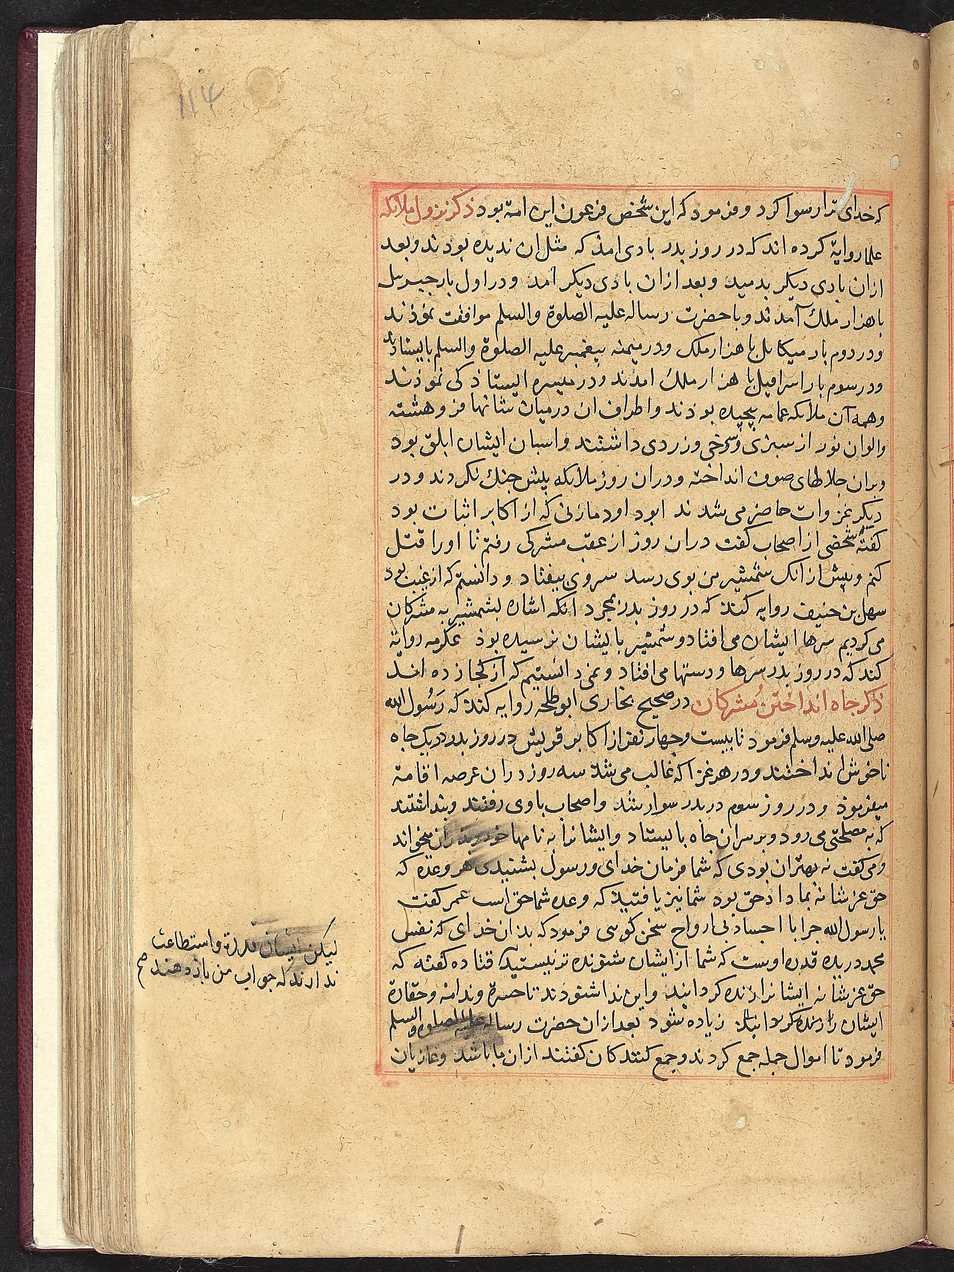 ۱۱۴
که خدای ترا رسوا کرد و فرمود که این شخص فرعون این امة بود ذکر نزول ملائکه
علما روایة کرده اند که در روز بدر بادی امذ که مثل ان ندیده بودند و بعد
ازان بادی دیکر بدمید و بعد ازان بادی دیکر آمد و در اول بار جبرییل
با هزار ملک آمدند و با حضرت رساله علیه الصلوة والسلم موافقت نموذند
و در دوم بار میکاییل با هزار ملک و در میمنه پیغمبر علیه الصلوة والسلم بایستاذ
و در سوم بار اسرافیل با هزار ملک امدند و در میسره ایستاذکی نموذند
و همه آن ملائکه عمامه پیچیده بوذند و اطراف ان در میان شانها فرو هشته
والوان نور از سبزی و سرخی و زردی داشتند و اسبان ایشان ابلق بود
و بران جلاطهای صوف انداخته و دران روز ملائکه بیش جنک نکردند و در
دیکر غزوات حاضر می شدند ابو داود مازنی که از اکابر اثبات بود
کفته شخصی از اصحاب کفت دران روز از عقب مشرکی رفتم تا او را قتل
کنم و پیش از انک شمشیر من بوی رسد سر وی بیفتاد و دانستم که از غیب بود
سهل بن حنیف روایه کند که در روز بدر بمجرد انکه اشاره بشمشیر به مشرکان
می کردیم سرها ایشان می افتاد و شمشیر با یشان نرسیده بوذ عکرمه روایة
کند که در روز بدر سرها و دستها می افتاد و نمی دانستیم که از کجا زده اند
ذکر جاه انداختن مشرکان در صحیح بخاری ابو طلحه روایه کند که رسول الله
صلی الله علیه وسلم فرمود تا بیست و چهار نفر از اکابر قریش در روز بدر در یک جاه
ناخوش انداختند و در هر غزا که غالب می شد سه روز دران عرصه اقامة
میفرموذ و در روز سوم در بدر سوار شد و اصحاب با وی رفتند و پنداشتند
که به مصلحتی می رود و بر سران جاه بایستاد و ایشانرا به نامها میخواند
و می کفت نه بهتران بودی که شما فرمان خدای و رسول بشنیدی هر وعده که
حق عز شانه بما داد حق بود شما نیز یافتید که وعده شما حق است عمر کفت
یا رسول الله جرا با اجساد بی ارواح سخن کوسی فرمود که بدان خدای که نفس
محمد در ید قدرة اوست که شما از ایشان شنونده تر نیستید قتاده کفته که
حق عز شانه ایشانرا زنده کردانید و این ندا شنودند تا حسرة و ندامة و حقارة
ایشان زیاده شود بعد ازان حضرت رساله علیه الصلوة والسلم
فرمود تا اموال جمله جمع کردند و جمع کنندکان کفتند ازان ما باشد و غازیان
لیکن ایشان قدرة و استطاعت
ندارند که جواب من باز دهند صح